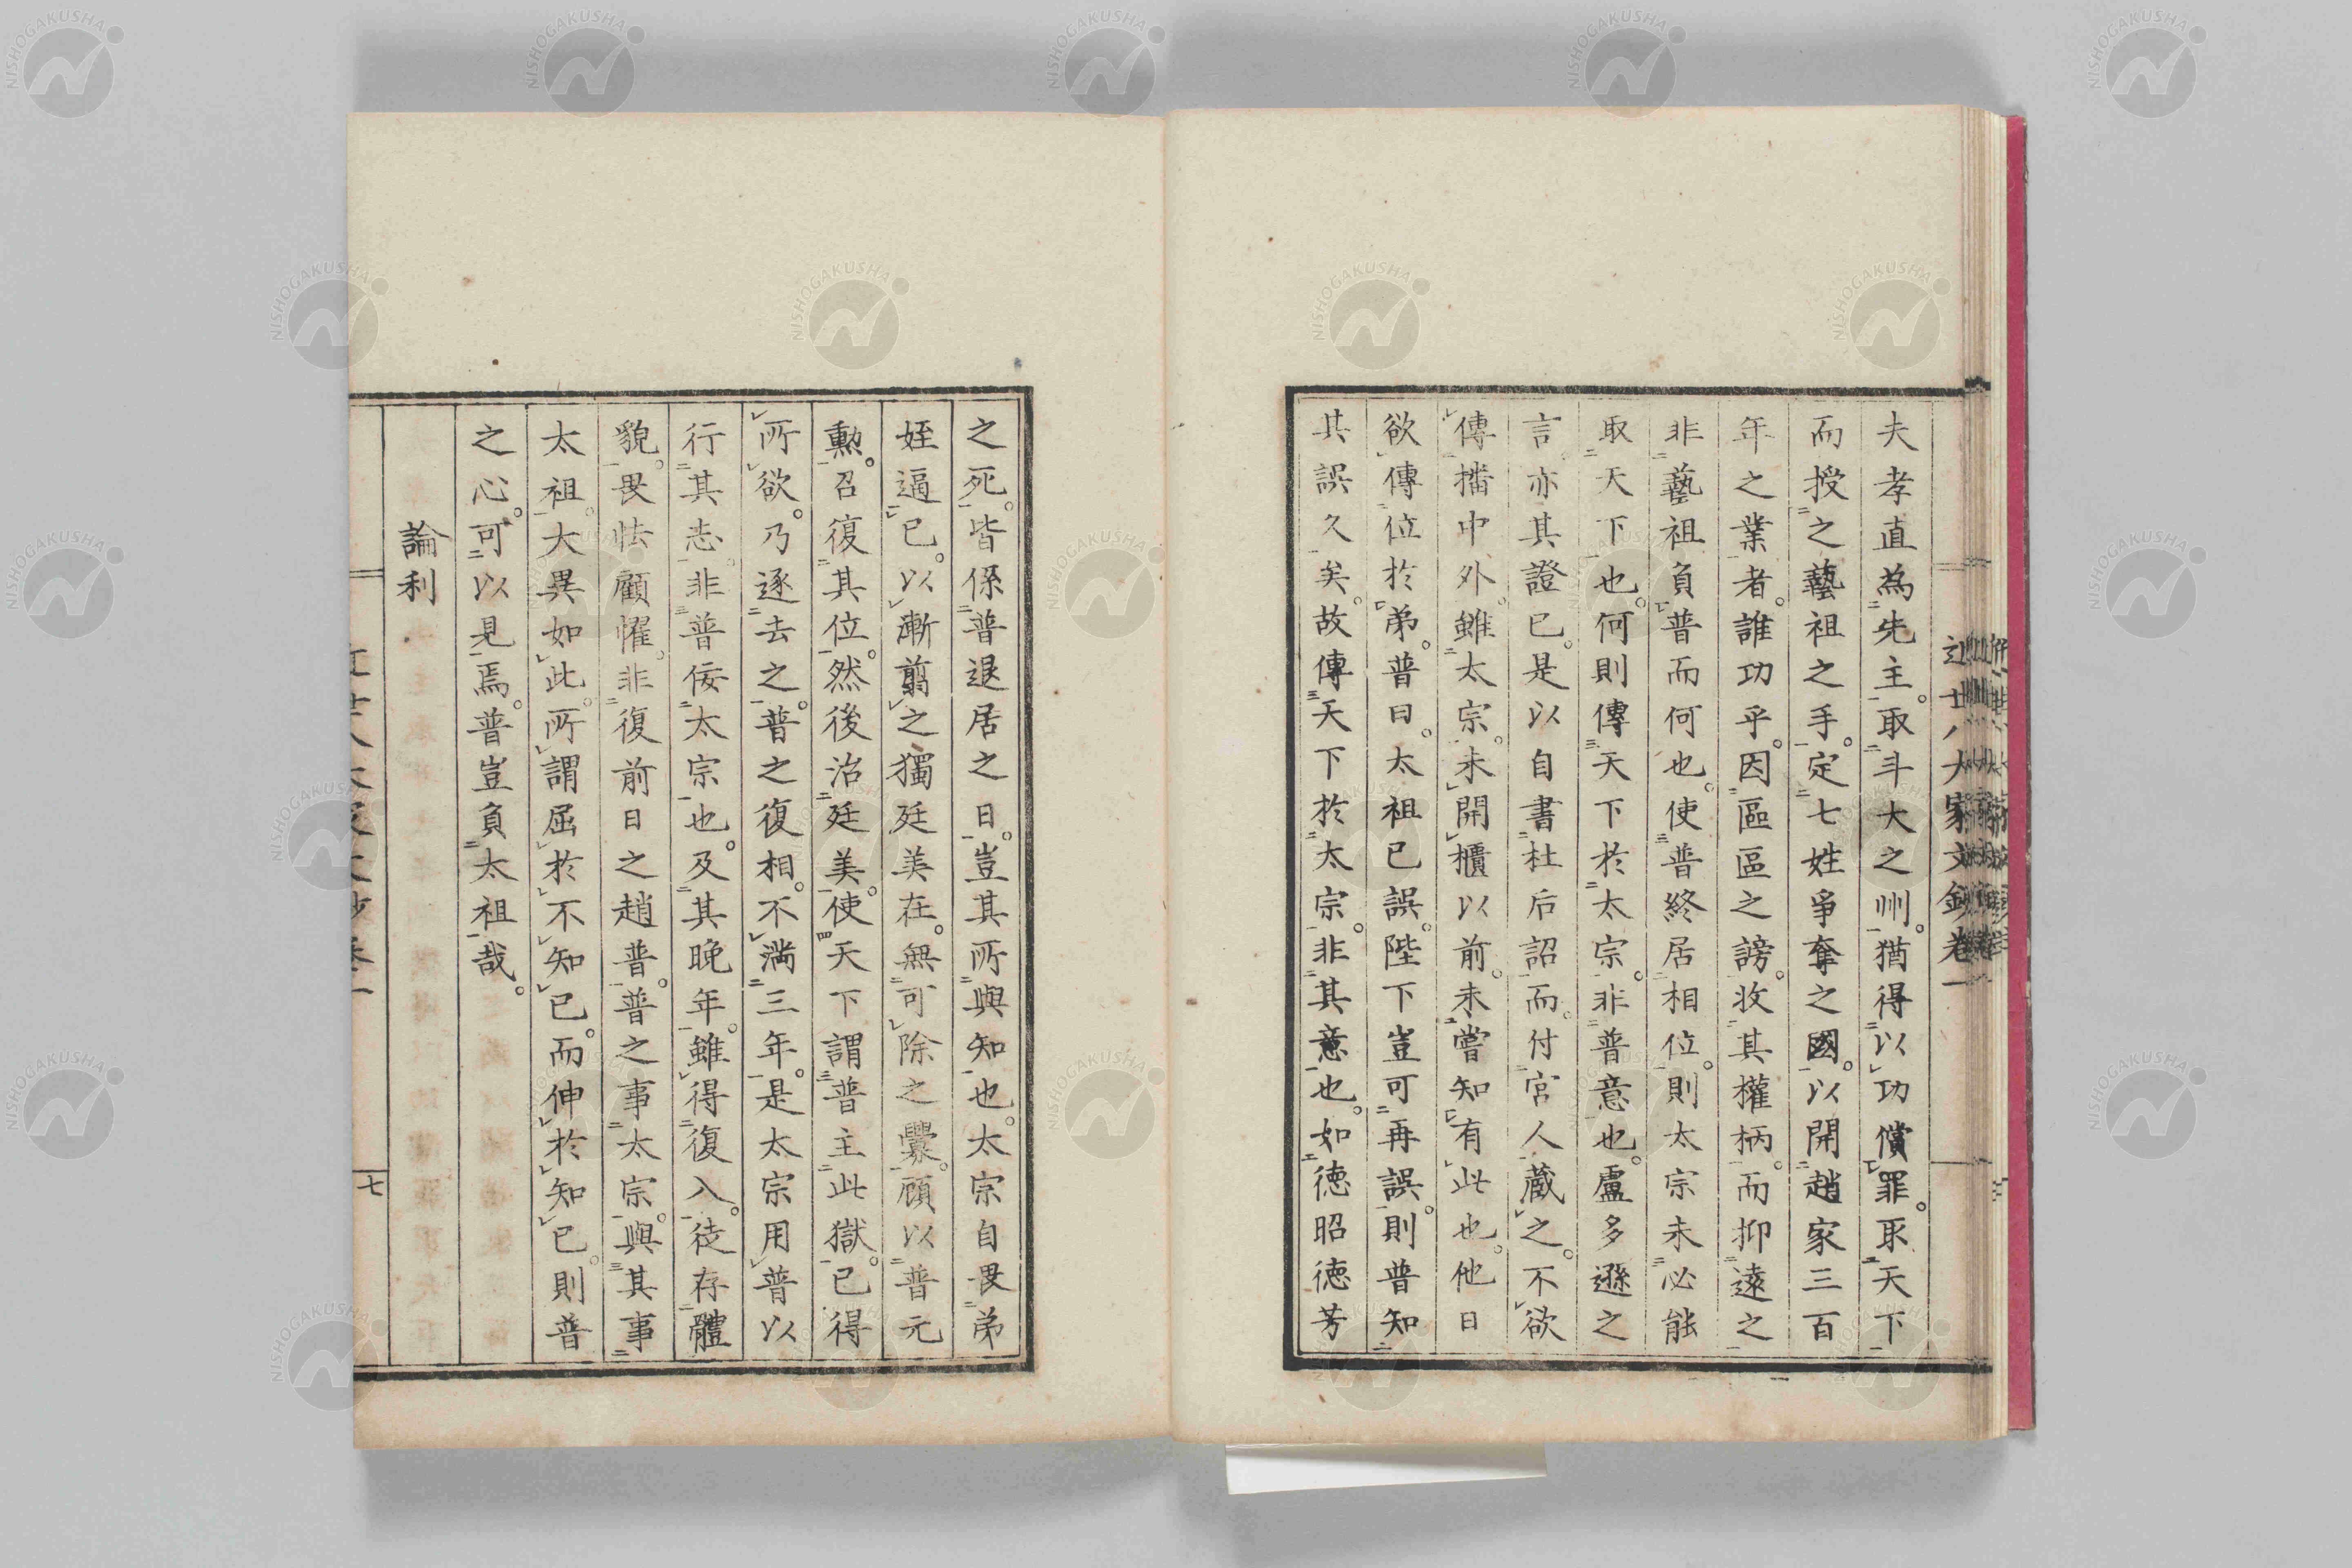 近世八大家文鈔卷一
夫孝直為先主。取斗大之州。猶得以功償罪。取天下
而授之藝祖之手。定七姓爭奪之國。以開趙家三百
年之業者。誰功乎。因區區之謗。收其權柄。而抑遠之
非藝祖負普而何也。使普終居相位。則太宗未必能
取天下也。何則傳天下於太宗。非普意也。盧多遜之
言亦其證已。是以自書杜后詔而。付宮人藏之。不欲
傳播中外。雖太宗。未開櫃以前。未嘗知有此也。他日
欲傳位於弟。普曰。太祖已誤。陛下豈可再誤。則普知
其誤久矣。故傳天下於太宗。非其意也。如德昭德芳
之死。皆係普退居之日。豈其所與知也。太宗自畏弟
姪逼已。以漸翦之獨廷美在。無可除之釁。頋以普元
勲。召復其位。然後治廷美。使天下謂普主此獄。已得
所欲。乃逐去之。普之復相。不滿三年。是太宗用普以
行其志。非普佞太宗也。及其晚年。雖得復入。徒存體
貌。畏怯顧懼。非復前日之趙普。普之事太宗。與其事
太祖。大異如此。所謂屈於不知已。而伸於知已。則普
之心。可以見焉。普豈負太祖哉。
論利
七
NISHOGAKUSHA